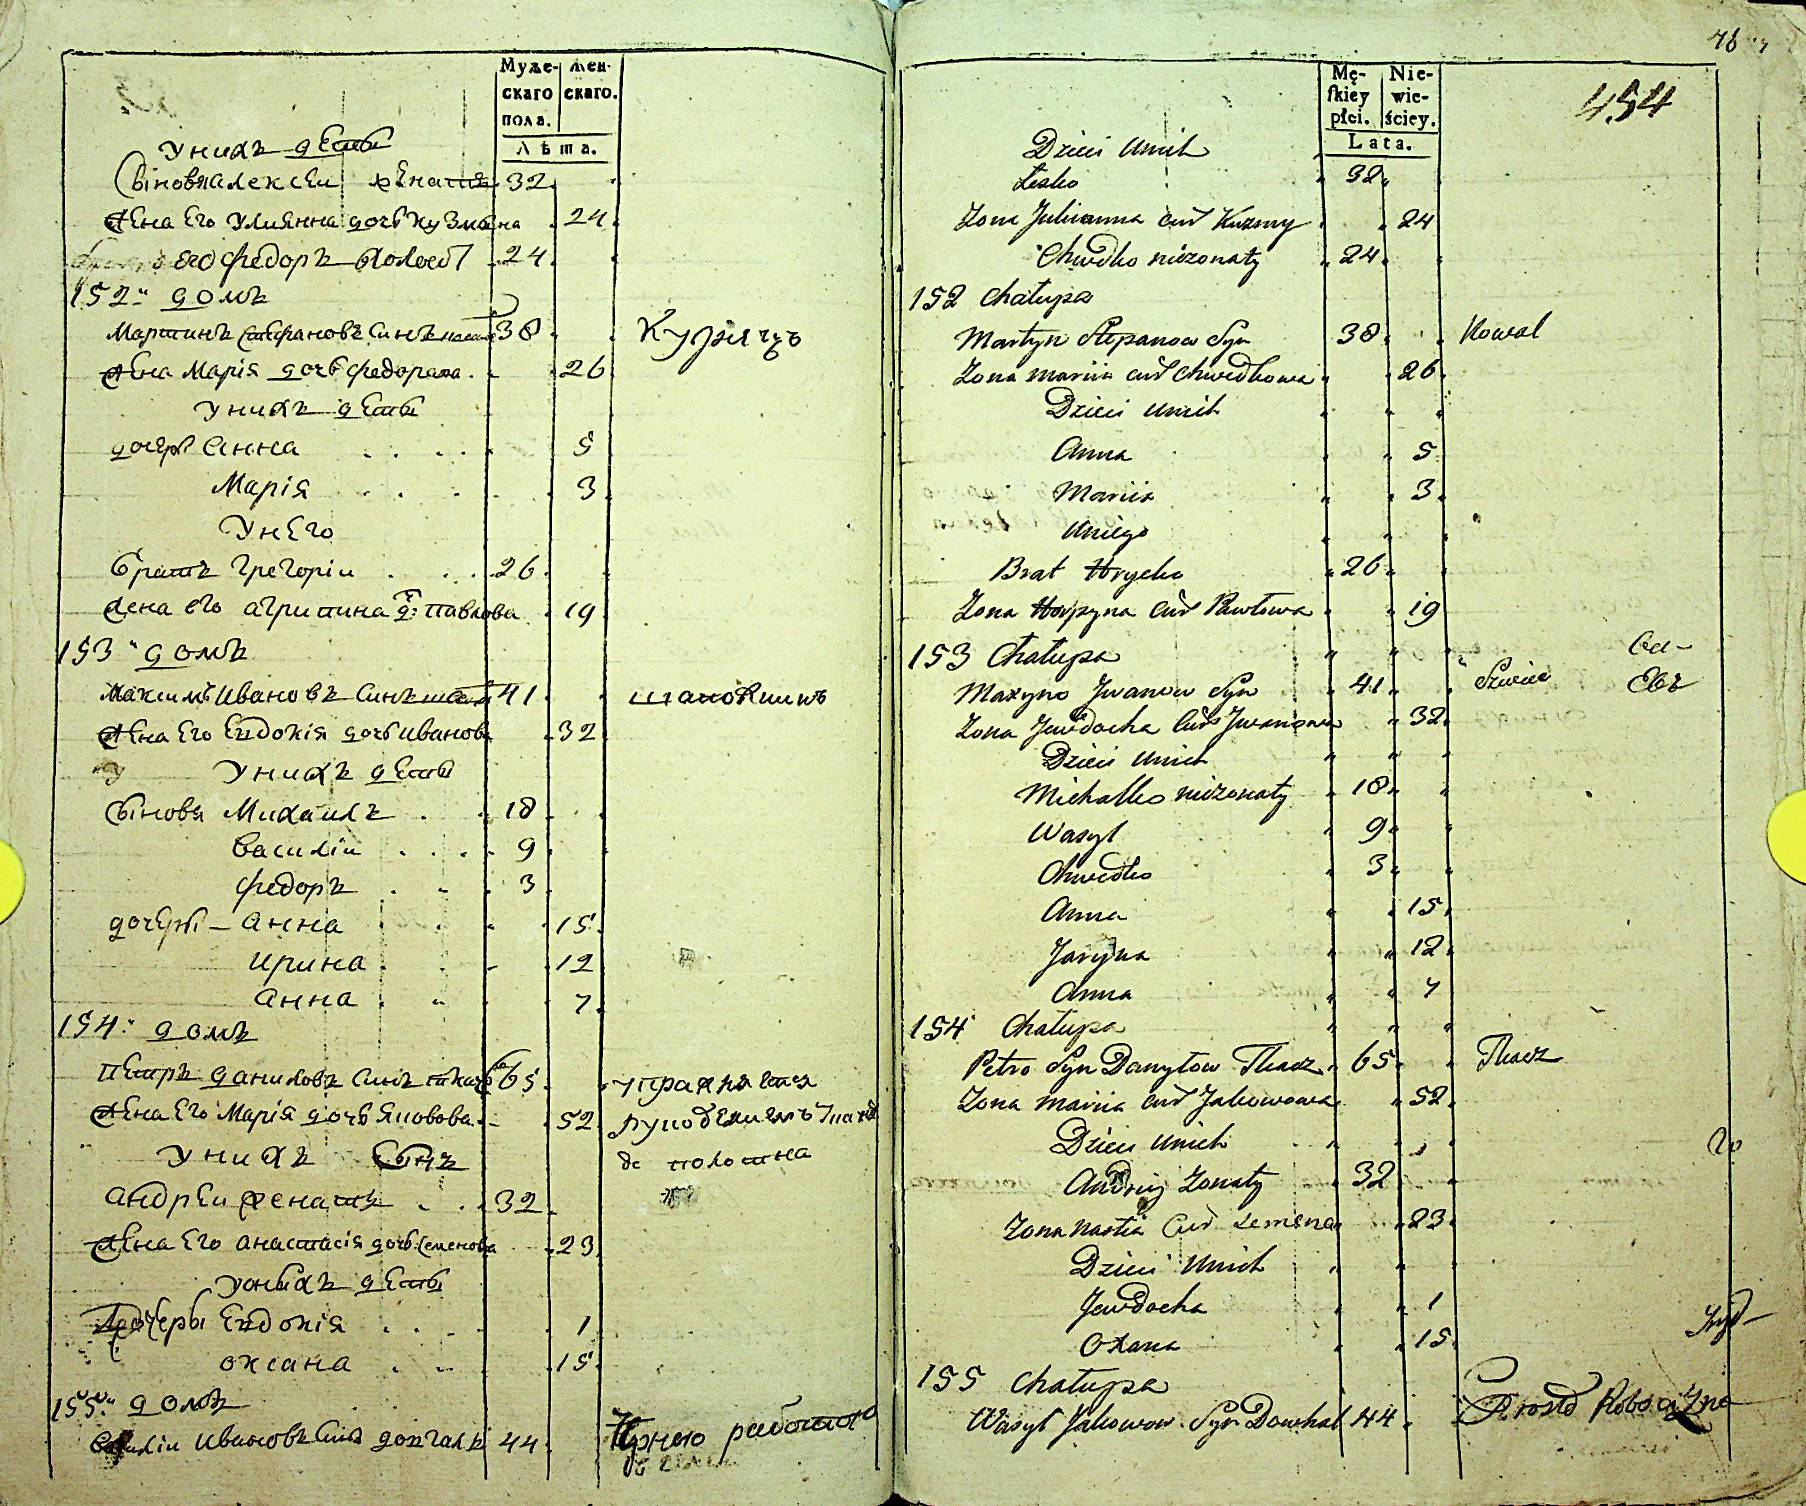 Муже-
скаго
пола.
Жен-
скаго.
Лѣта.
Унихъ дети
Сыновя Алексеи женатъ 32
Жена Его Улиянна дочь Кузмина 24
Его Федоръ холост 24
152 домъ
Мартинъ Стефановъ Синъ 38 Кузнецъ
Жена Марія дочь Федорова 26
Унихъ дети
дочерѣ Анна 5
Марія 3
Унего
братъ Григоріи 26
Жена его Агрипина д: павлова 19
153 домъ
Максимъ Ивановъ Синъ 41
Жена Его Евдокія дочь Иванова 32
Унихъ дети
Сыновя Михаилъ 18
Василіи 9
Федоръ 3
дочери – Анна 15
Ирина 12
Анна 7
154 домъ
Петръ даниловъ Синъ ткачъ 65 упражняется
Жена Его Марія дочь Яковова 52 рукоделиемъ
Унихъ Сынъ полотна
Андреи женатъ 32
Жена Его Анастасія дочь Семенова 23
Уоныхъ дети
дочеры Евдокія 1
Оксана 15
155 домъ
Василіи Ивановъ Синъ довгалъ 44 работою
46
454
Mę-
ſkiey
płci.
Nie-
wie-
ściey.
Lata.
Dzieci Unich
Leśko 32
Żona Julianna Cur Kuzmy 24
Chwedko nieżonaty 24
152 Chałupa
Martyn Stepanow Syn 38 Kowal
Żona Mariia Cur Chwedkowa 26
Dzieci Unich
Anna 5
Mariia 3
Uniego
Brat Hryćko 26
Żona Horpyna Cur Pawłowa 19
153 Chałupa
Maxym Jwanow Syn 41 Szwiec
Żona Jewdocha Cur Jwanowa 32
Dzieci Unich
Michałko nieżonaty 18
Wasyl 9
Chwedko 3
Anna 15
Jaryna 12
Anna 7
154 Chałupa
Petro Syn Danyłow Tkacz 65 Tkacz
Żona Mariia Cur Jakowowa 52
Dzieci Unich
Andrey Żonaty 32
Żona Nastia Cur Semena 23
Dzieci Unich
Jewdocha 1
Oxana 15
155 Chałupa
Wasyl Jakowow Syn Dowhal 44 Prosto Robocizne